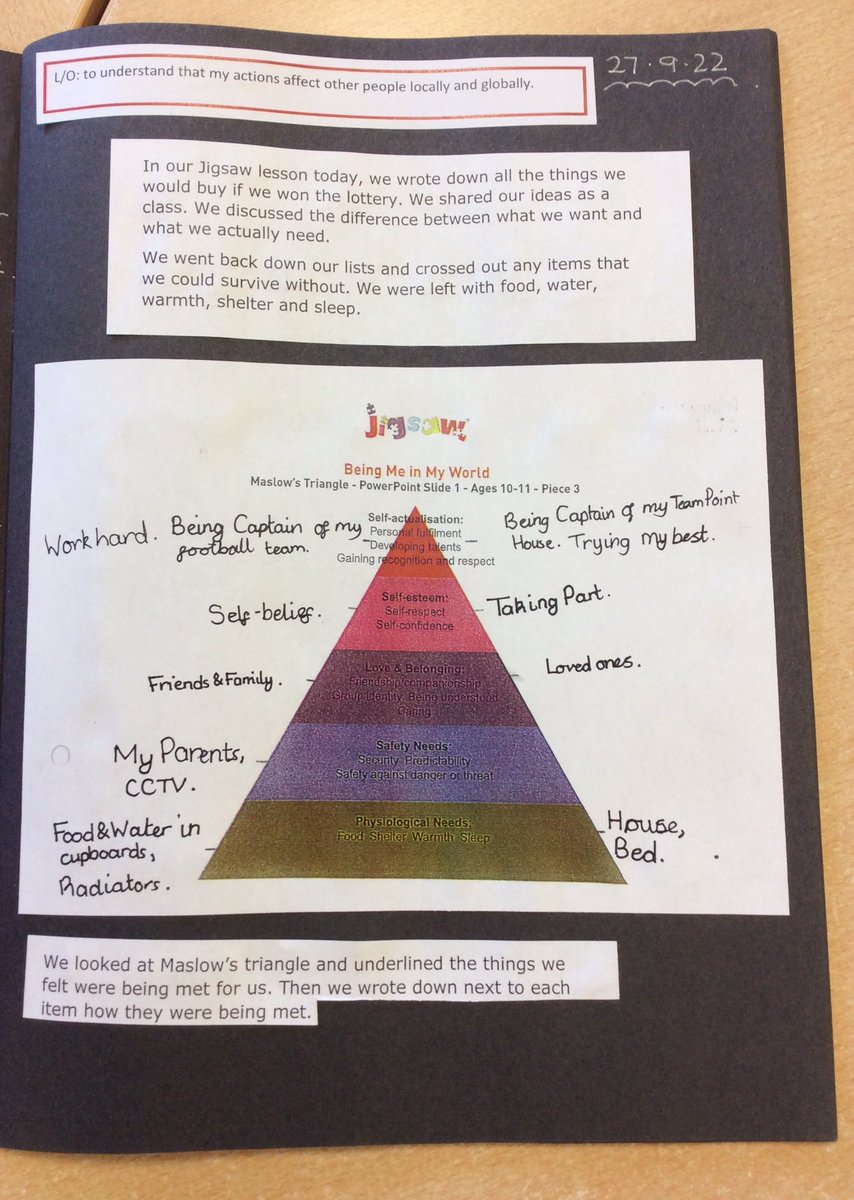 L/O: to understand that my actions affect other people locally and globally.
27.9.22
In our Jigsaw lesson today, we wrote down all the things we
would buy if we won the lottery. We shared our ideas as a
class. We discussed the difference between what we want and
what we actually need.
We went back down our lists and crossed out any items that
we could survive without. We were left with food, water,
warmth, shelter and sleep.
Jigsaw
Being Me in My World
Maslow's Triangle - PowerPoint Slide 1 - Ages 10-11 - Piece 3
Work hard. Being Captain of my
football team.
Self-actualisation:
Personal fulfilment
Developing talents
Gaining recognition and respect
Being Captain of my Team Point
House. Trying my best.
Self-belief.
Self-esteem:
Self-respect
Self-confidence
Taking Part.
Friends & Family.
Love & Belonging:
Friendship/companionship
Group identity Being understood
Caring
Loved ones.
My Parents,
CCTV.
Safety Needs:
Security Predictability
Safety against danger or threat
Food & Water in
cupboards,
Radiators.
Physiological Needs:
Food Shelter Warmth Sleep
House,
Bed.
We looked at Maslow's triangle and underlined the things we
felt were being met for us. Then we wrote down next to each
item how they were being met.